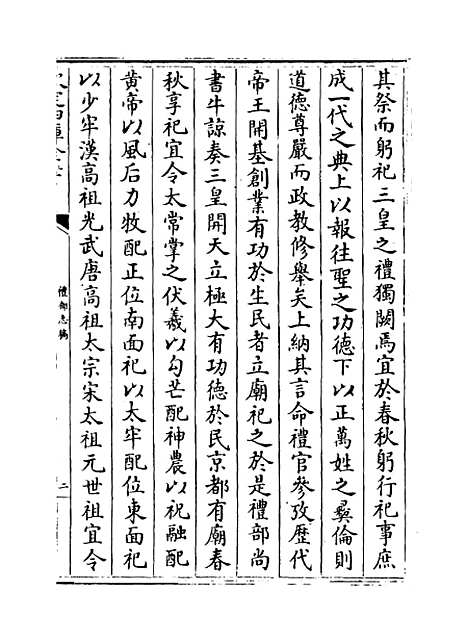 其祭而躬祀三皇之禮獨闕焉宜於春秋躬行祀事庶
成一代之典上以報往聖之功德下以正萬姓之彛倫則
道德尊嚴而政教修舉矣上納其言命禮官參攷歴代
帝王開基創業有功於生民者立廟祀之於是禮部尚
書牛諒奏三皇開天立極大有功德於民京都有廟春
秋享祀宜令太常掌之伏羲以勾芒配神農以祝融配
黄帝以風后力牧配正位南面祀以太牢配位東面祀
以少牢漢高祖光武唐高祖太宗宋太祖元世祖宜令
禮部志稿
二